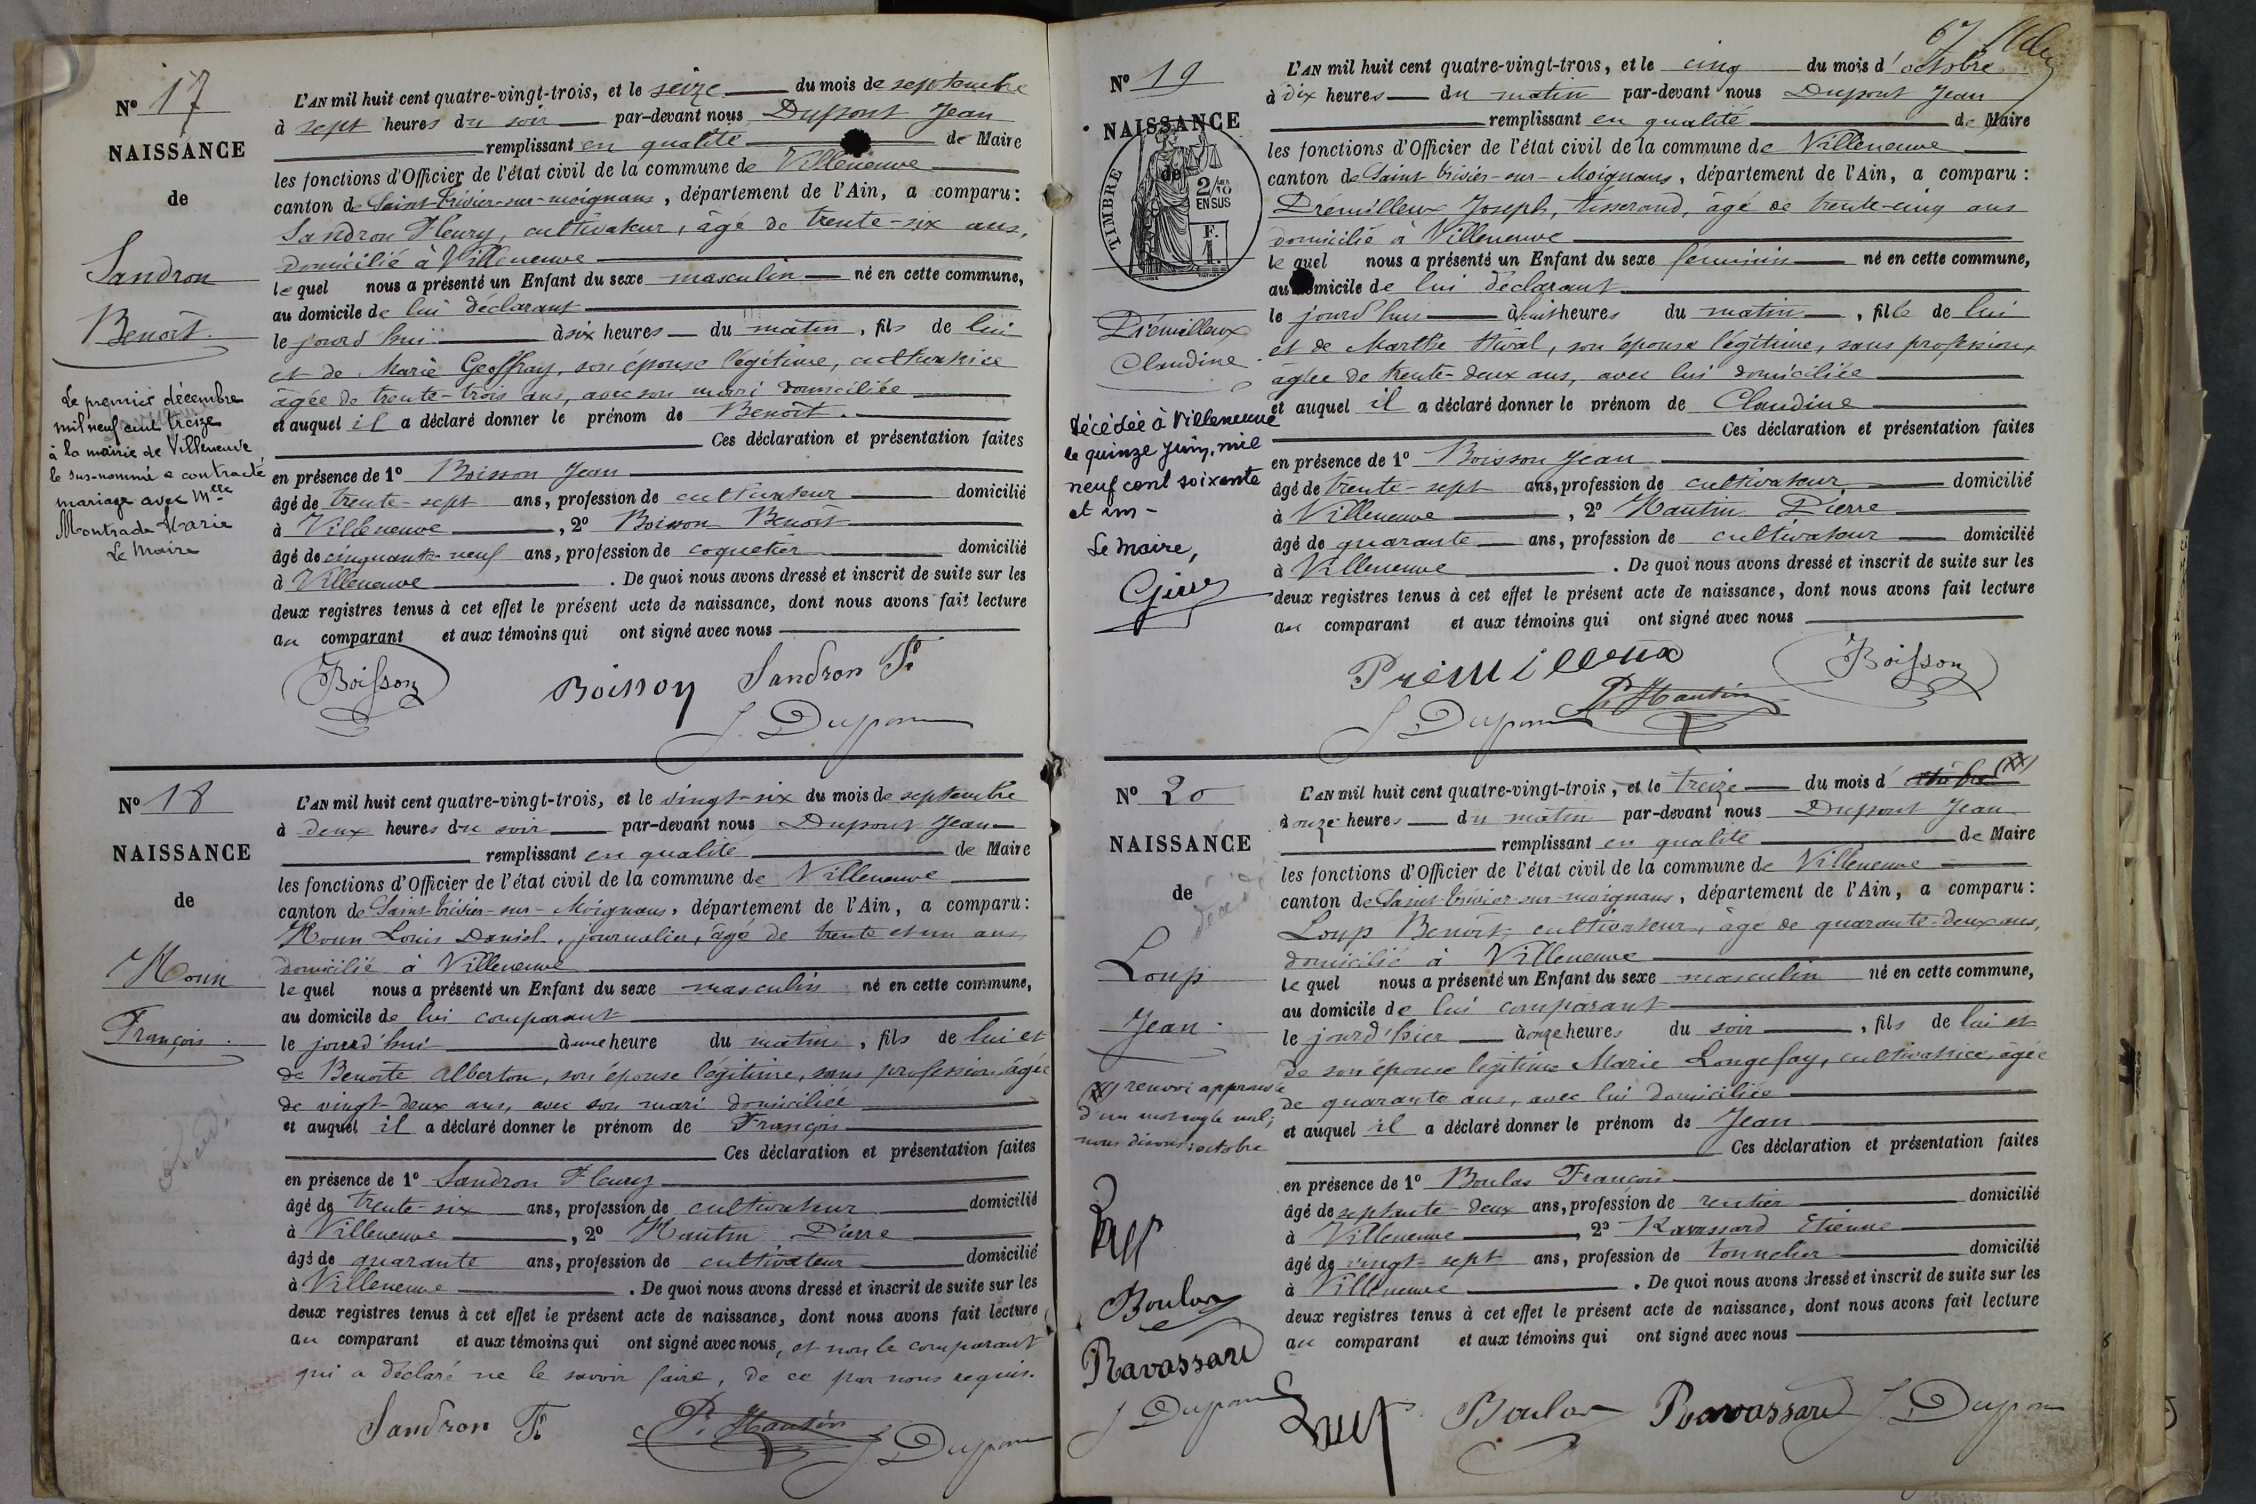 Nº 17
NAISSANCE
de
Sandron
Benoît.
Le premier décembre
mil neuf cent treize
à la mairie de Villeneuve
le sus-nommé a contracté
mariage avec Mlle
Montrade Marie
Le Maire
L'AN mil huit cent quatre-vingt-trois, et le seize du mois de septembre
à sept heures du soir par-devant nous Dupont Jean
remplissant en qualité de Maire
les fonctions d'Officier de l'état civil de la commune de Villeneuve
canton de Saint-Trivier-sur-moignans, département de l'Ain, a comparu :
Sandron Fleury, cultivateur, âgé de trente-six ans,
domicilié à Villeneuve
lequel nous a présenté un Enfant du sexe masculin né en cette commune,
au domicile de lui déclarant
le jourd'hui à six heures du matin, fils de lui
et de Marie Geoffray, son épouse légitime, cultivatrice
âgée de trente-trois ans, avec son mari domiciliée
et auquel il a déclaré donner le prénom de Benoît.
Ces déclaration et présentation faites
en présence de 1º Boisson Jean
âgé de trente-sept ans, profession de cultivateur domicilié
à Villeneuve, 2º Boisson Benoît
âgé de cinquante-neuf ans, profession de coquetier domicilié
à Villeneuve. De quoi nous avons dressé et inscrit de suite sur les
deux registres tenus à cet effet le présent acte de naissance, dont nous avons fait lecture
au comparant et aux témoins qui ont signé avec nous
Boisson Boisson Sandron F.
J. Dupont
Nº 18
NAISSANCE
de
François.
décédé
L'AN mil huit cent quatre-vingt-trois, et le vingt-six du mois de septembre
à deux heures du soir par-devant nous Dupont Jean
remplissant en qualité de Maire
les fonctions d'Officier de l'état civil de la commune de Villeneuve
canton de Saint-trivier-sur-Moignans, département de l'Ain, a comparu :
Louis Daniel, journalier, âgé de trente et un ans
domicilié à Villeneuve
lequel nous a présenté un Enfant du sexe masculin né en cette commune,
au domicile de lui comparant
le jourd'hui à une heure du matin, fils de lui et
de Benoîte Alberton, son épouse légitime, sans profession âgée
de vingt-deux ans, avec son mari domiciliée
et auquel il a déclaré donner le prénom de François
Ces déclaration et présentation faites
en présence de 1º Sandron Fleury
âgé de trente-six ans, profession de cultivateur domicilié
à Villeneuve, 2º Hautin Pierre
âgé de quarante ans, profession de cultivateur domicilié
à Villeneuve. De quoi nous avons dressé et inscrit de suite sur les
deux registres tenus à cet effet le présent acte de naissance, dont nous avons fait lecture
au comparant et aux témoins qui ont signé avec nous, et non le comparant
qui a déclaré ne le savoir faire, de ce par nous requis.
Sandron F. P. Hautin J. Dupont
67
Nº 19
NAISSANCE
de
TIMBRE
2/10
EN SUS
F.
1.
Prémilleux
Claudine.
décédée à Villeneuve
le quinze juin, mil
neuf cent soixante
et un -
Le Maire,
L'AN mil huit cent quatre-vingt-trois, et le cinq du mois d'octobre
à dix heures du matin par-devant nous Dupont Jean
remplissant en qualité de Maire
les fonctions d'Officier de l'état civil de la commune de Villeneuve
canton de Saint-trivier-sur-Moignans, département de l'Ain, a comparu :
Prémilleux Joseph, tisserand, âgé de trente-cinq ans
domicilié à Villeneuve
lequel nous a présenté un Enfant du sexe féminin né en cette commune,
au domicile de lui déclarant
le jourd'hui à huit heures du matin, fille de lui
et de Marthe son épouse légitime, sans profession,
âgée de trente-deux ans, avec lui domiciliée
et auquel il a déclaré donner le prénom de Claudine
Ces déclaration et présentation faites
en présence de 1º Boisson Jean
âgé de trente-sept ans, profession de cultivateur domicilié
à Villeneuve, 2º Hautin Pierre
âgé de quarante ans, profession de cultivateur domicilié
à Villeneuve. De quoi nous avons dressé et inscrit de suite sur les
deux registres tenus à cet effet le présent acte de naissance, dont nous avons fait lecture
au comparant et aux témoins qui ont signé avec nous
Prémilleux Boisson
J. Dupont P. Hautin
Nº 20
NAISSANCE
de
décédé
Loup
Jean.
(X) renvoi approuvé
d'un mot rayé nul;
nous disons octobre
Loup
Boulas
Ravassard
J. Dupont
L'AN mil huit cent quatre-vingt-trois, et le treize du mois d'octobre (X)
à onze heures du matin par-devant nous Dupont Jean
remplissant en qualité de Maire
les fonctions d'Officier de l'état civil de la commune de Villeneuve
canton de Saint-trivier-sur-moignans, département de l'Ain, a comparu :
Loup Benoît, cultivateur, âgé de quarante-deux ans,
domicilié à Villeneuve
lequel nous a présenté un Enfant du sexe masculin né en cette commune,
au domicile de lui comparant
le jourd'hier à onze heures du soir, fils de lui et
de son épouse légitime Marie Longefay, cultivatrice, âgée
de quarante ans, avec lui domiciliée
et auquel il a déclaré donner le prénom de Jean
Ces déclaration et présentation faites
en présence de 1º Boulas François
âgé de septante-deux ans, profession de rentier domicilié
à Villeneuve, 2º Ravassard Etienne
âgé de vingt-sept ans, profession de tonnelier domicilié
à Villeneuve. De quoi nous avons dressé et inscrit de suite sur les
deux registres tenus à cet effet le présent acte de naissance, dont nous avons fait lecture
au comparant et aux témoins qui ont signé avec nous
Loup Boulas Ravassard J. Dupont